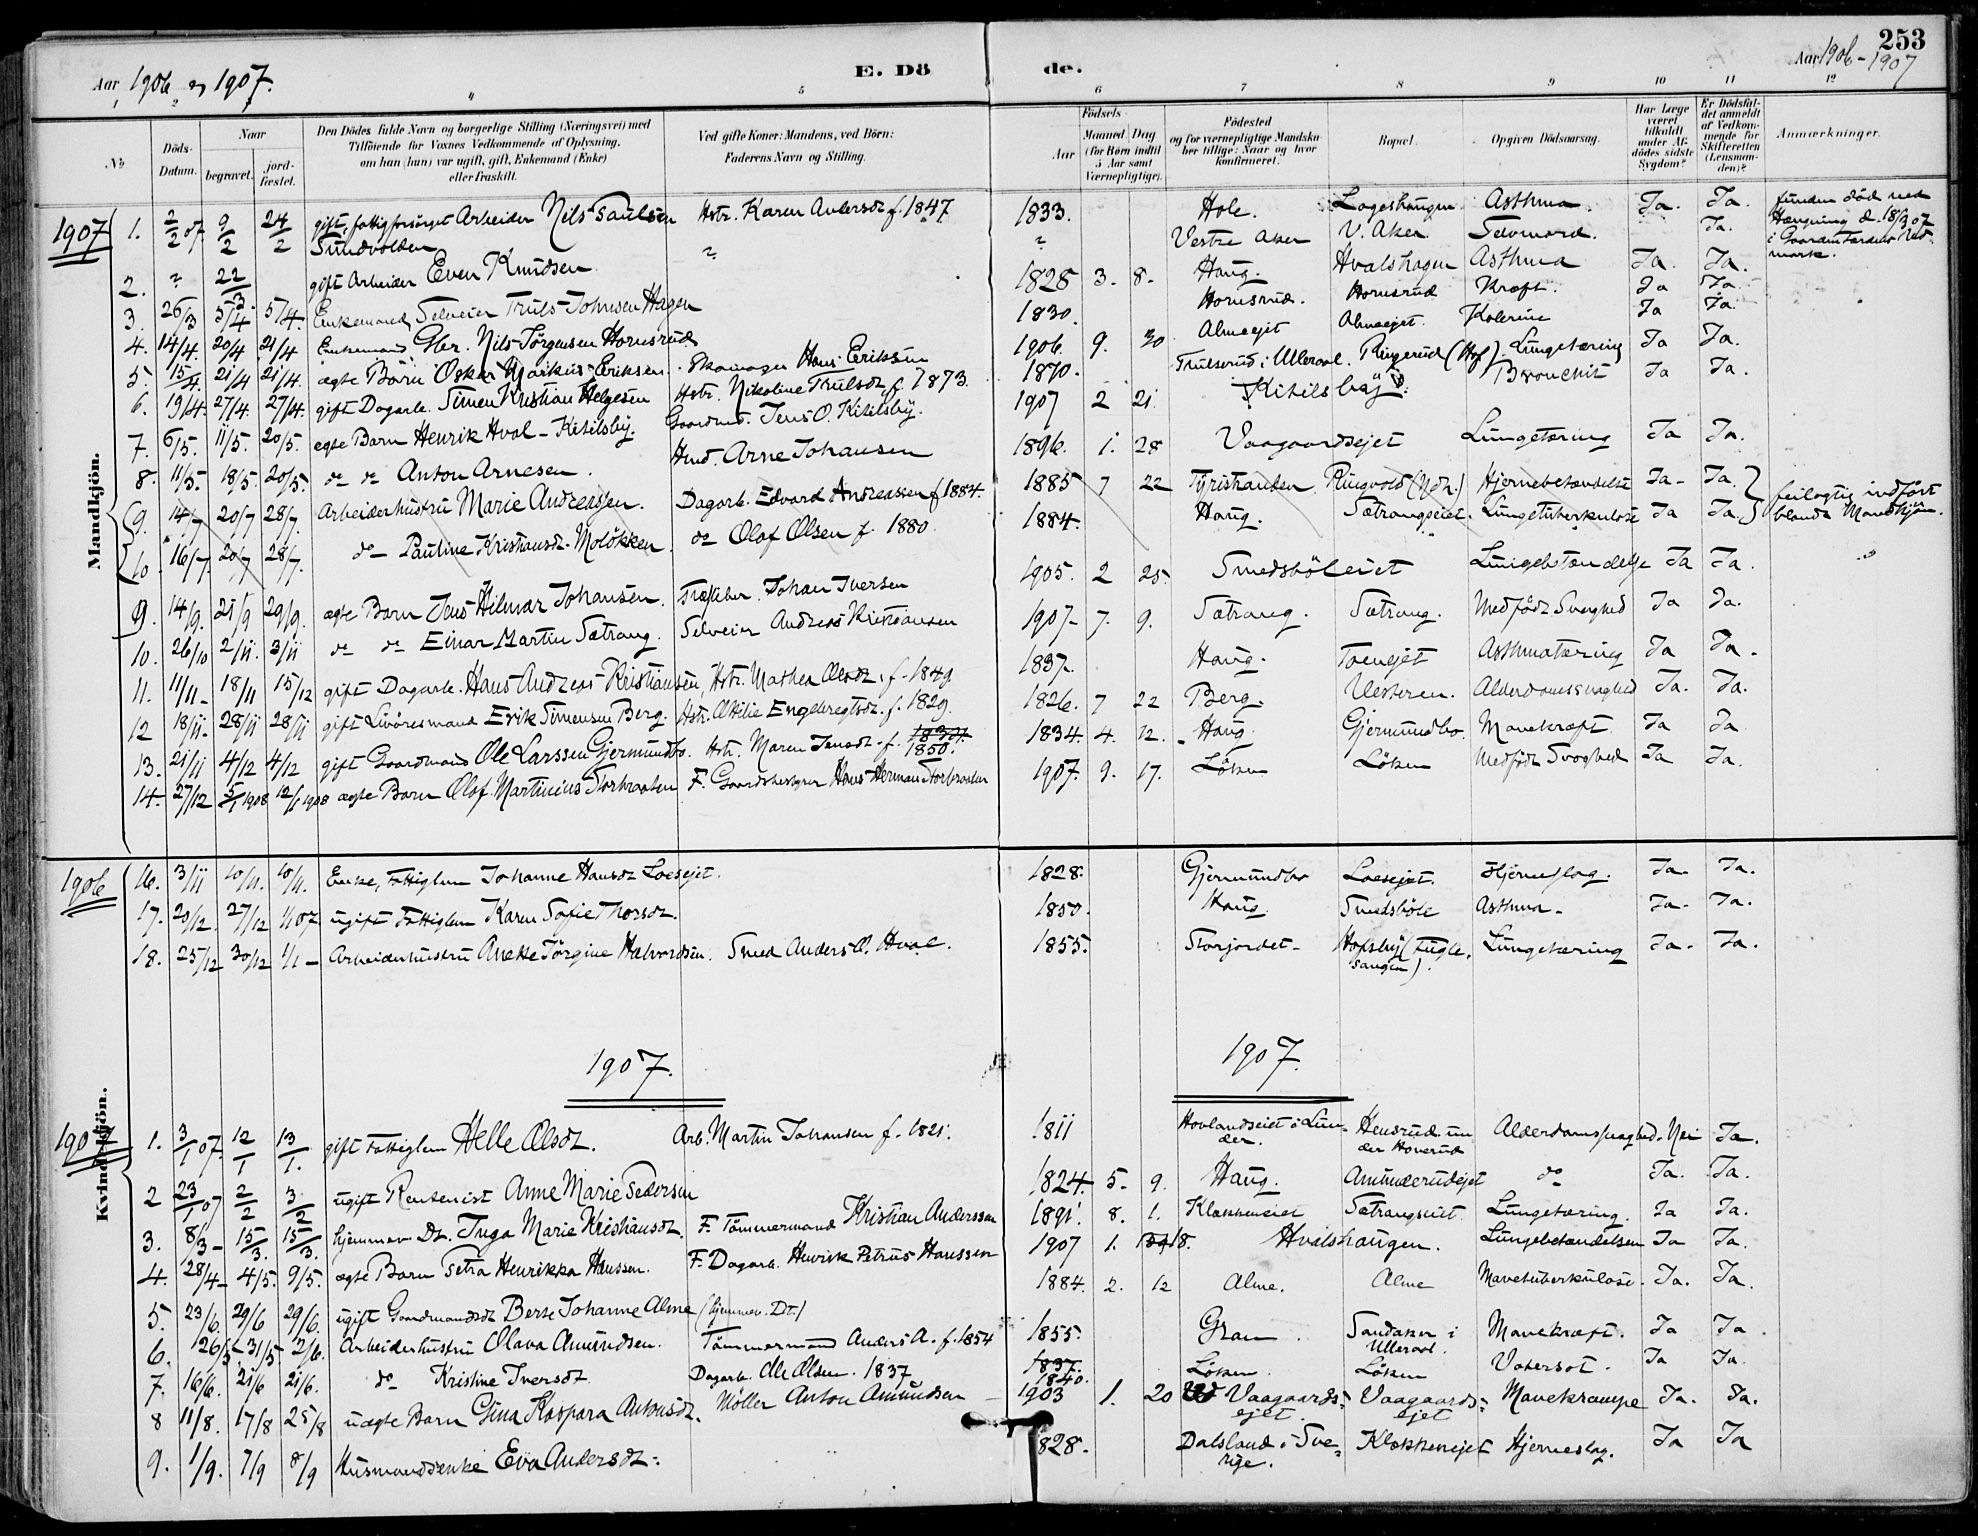 253
Aar 1906 og 1907. E. Dö de. Aar 1906-1907
4 5 6 7 8 9 10 11 12
No Döds-Datum. Naar begravet. jordfæstet. Den Dödes fulde Navn og borgerlige Stilling (Næringsvei) med Tilföiende for Voxnes Vedkommende af Oplysning, om han (hun) var ugift, gift, Enkemand (Enke) eller fraskilt. Ved gifte Koner: Mandens, ved Börn: Faderens Navn og Stilling. Födsels- Aar Maaned Dag (for Börn indtil 5 Aar samt Værnepligtige). Födested og for værnepligtige Mandskaber tillige: Naar og hvor konfirmeret. Bopæl. Opgiven Dödsaarsag. Har Læge været tilkaldt under Afdödes sidste Sygdom? Er Dödsfaldet anmeldt af Vedkommende for Skifteretten (Lensmanden)? Anmærkninger.
Mandkjön.
1907 1. 2/2 07 9/2 24/2 gift, fattigforsörget Arbeider Nils Paulsen Sundvolden Hstr. Karen Andersdt f. 1847 1833. Hole. Lageshaugen Asthma. Ja. Ja.
2. ? 22/3 gift Arbeider Even Knudsen ? ? Vestre Aker V. Aker. Selvmord. Ja. funden död ved Hængning d. 18/3 07 i Gaarden
3. 26/3 5/4 5/4. Enkemand, Selveier Truls Johnsen Hagen 1828 3. 8. Haug. Hvalshagen Asthma Ja. Ja.
4. 14/4. 20/4 21/4 Enkemand Gbr. Nils Jörgensen Hornsrud 1830. Hornsrud. Hornsrud Kræft. Ja Ja.
5. 15/4. 21/4 21/4. ægte Barn Oskar Marikus Eriksen. Skomager Hans Eriksen 1906. 9. 30 Almeejet Almeejet. Kolerine Ja Ja.
6. 19/4. 27/4. 27/4. gift Dagarb. Simen Kristian Helgesen Hstr. Nikoline Trulsdt f. 1873. 1870. Trulserud i Ulleraal. Ringerud (Hof) Lungetæring Ja Ja.
7. 6/5. 11/5. 20/5. ægte Barn Henrik Hval-Kitilsby. Gaardmd. Jens O. Kitilsby. 1907 2 21. Kitilsby. Bronchit Ja Ja.
8. 11/5. 18/5. 20/5. do do Anton Arnesen. Hmd. Arne Johansen 1896. 1. 28 Vaagaardsejet Lungetæring Ja Ja.
(9. 14/7 20/7 28/7. Arbeiderhustru Marie Andreassen. Dagarb. Edvard Andreassen f 1884. 1885 7 22 Tyristranden Ringvold (Ndr.) Hjernebetændelse Ja- Ja. feilagtig indfört blandt Mandkjön.
(10. 16/7. 20/7 28/7. do- Pauline Kristiansdt. Molökken. do Olaf Olsen f. 1880. 1884. Haug. Sætrangseiet. Lungetuberkulose Ja Ja.
9. 14/9. 21/9 29/9. ægte Barn Jens Hilmar Johansen. Johan Iversen 1905. 2 25. Smedsböleiet Lungebetændelse Ja Ja.
10. 26/10 2/11. 3/11 do do Einar Martin Sætrang. Selveier Andreas Kristiansen 1907- 7. 9. Sætrang. Sætrang. Medfödt Svaghed Ja Ja.
11. 11/11- 18/11 15/12 gift Dagarb. Hans Andreas Kristiansen, Hstr. Mathea Olsdt. f. 1849 1837. Haug. Toenejet Asthmatæring Ja Ja.
12 18/11. 28/11 28/11 gift Livöresmand Erik Simensen Berg. Hstr. Otilie Engebregtsdt. f. 1829. 1826. 7 22 Berg. Vesteren. Alderdomssvaghed Ja. Ja.
13. 21/11 4/12 4/12 gift Gaardmand Ole Larssen Gjermundbo. Hstr. Maren Jensdt. f. 1850. 1834. 4. 12. Haug Gjermundbo. Mavekræft. Ja Ja
14. 27/12 5/1 1908 12/1 1908 ægte Barn Olaf Martinius Storbraaten F. Gaardsbestyrer Hans Herman Storbraaten 1907. 9. 17. Löken Löken Medfödt Svaghed Ja Ja.
Kvindekjön.
1906 16. 3/11 10/11. 10/11. Enke, Fattiglem Johanne Hansdt Loesejet. 1828. Gjermundbo Loesejet. Hjerneslag. Ja. Ja.
17. 20/12. 27/12 1/1 07 ugift Fattiglem Karen Sofie Thorsdt. 1850. Haug Smedsböle Asthma- Ja- Ja.
18. 25/12 30/12 1/1- Arbeiderhustru Anette Jörgine Halvordsen. Smed Anders A. Hval. 1855. Storjordet- Hofsby (Fuglesangen). Lungetæring Ja- Ja.
1907. 1907.
1907 1. 3/1 07. 12/1 13/1. gift Fattiglem Helle Olsdt. Arb. Martin Johansen f. 1821. 1811 Hovlandseiet i Lunder. Hensrud under Hoverud Alderdomssvaghed. Nei Ja.
2 23/1 07 2/2 3/2 ugift Rentenist Anne Marie Pedersen 1824. 5- 9. Haug. Amunderudejet do Ja. Ja.
3. 8/3- 15/3. 15/3. hjemmev. Dt. Inga Marie Kristiansdt. F. Tömmermand Kristian Anderssen 1891. 8. 1. Klækkeneiet Sætrangseiet. Lungetæring. Ja Ja.
4. 28/4- 4/5. 9/5. ægte Barn Petra Henrikka Hanssen. F. Dagarb. Henrik Petrus Hanssen 1907 1. 18. Hvalshaugen. Lungebetændelsen Ja Ja.
5. 23/6. 29/6 29/6. ugift Gaardmandsdt Berte Johanne Alme (hjemmev. Dt.) 1884. 2. 12 Alme. Alme Mavetuberkulose. Ja. Ja.
6. 26/5- 31/5. 2/6. Arbeiderhustru Olava Amundsen. Tömmermand Anders A. f. 1854 1855. Gran. Sandaker i Ulleraal. Mavekræft. Ja Ja.
7. 16/6. 21/6 21/6. do Kristine Iversdt Dagarb. Ole Olsen. 1837 1837. 1840. Löken Löken Vatersot. Ja Ja.
8 11/8. 17/8 25/8 uægte Barn Gina Kaspara Antonsdt. Möller Anton Amundsen 1903 1. 20 Vaagaardsejet. Vaagaardsejet Mavekrampe Ja. Ja.
9. 1/9. 7/9 8/9 Husmandsenke Eva Andersdt. 1828. Dalsland i Sverige. Klækkenejet Hjerneslag. Ja Ja